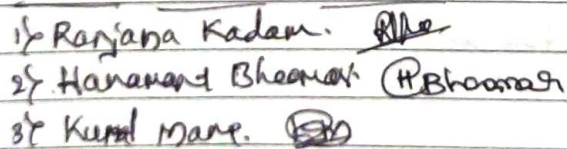 1) Ranjana Kadam.
2) Hanamant Bhoomar. HBhoomar
3) Kunal Mane.